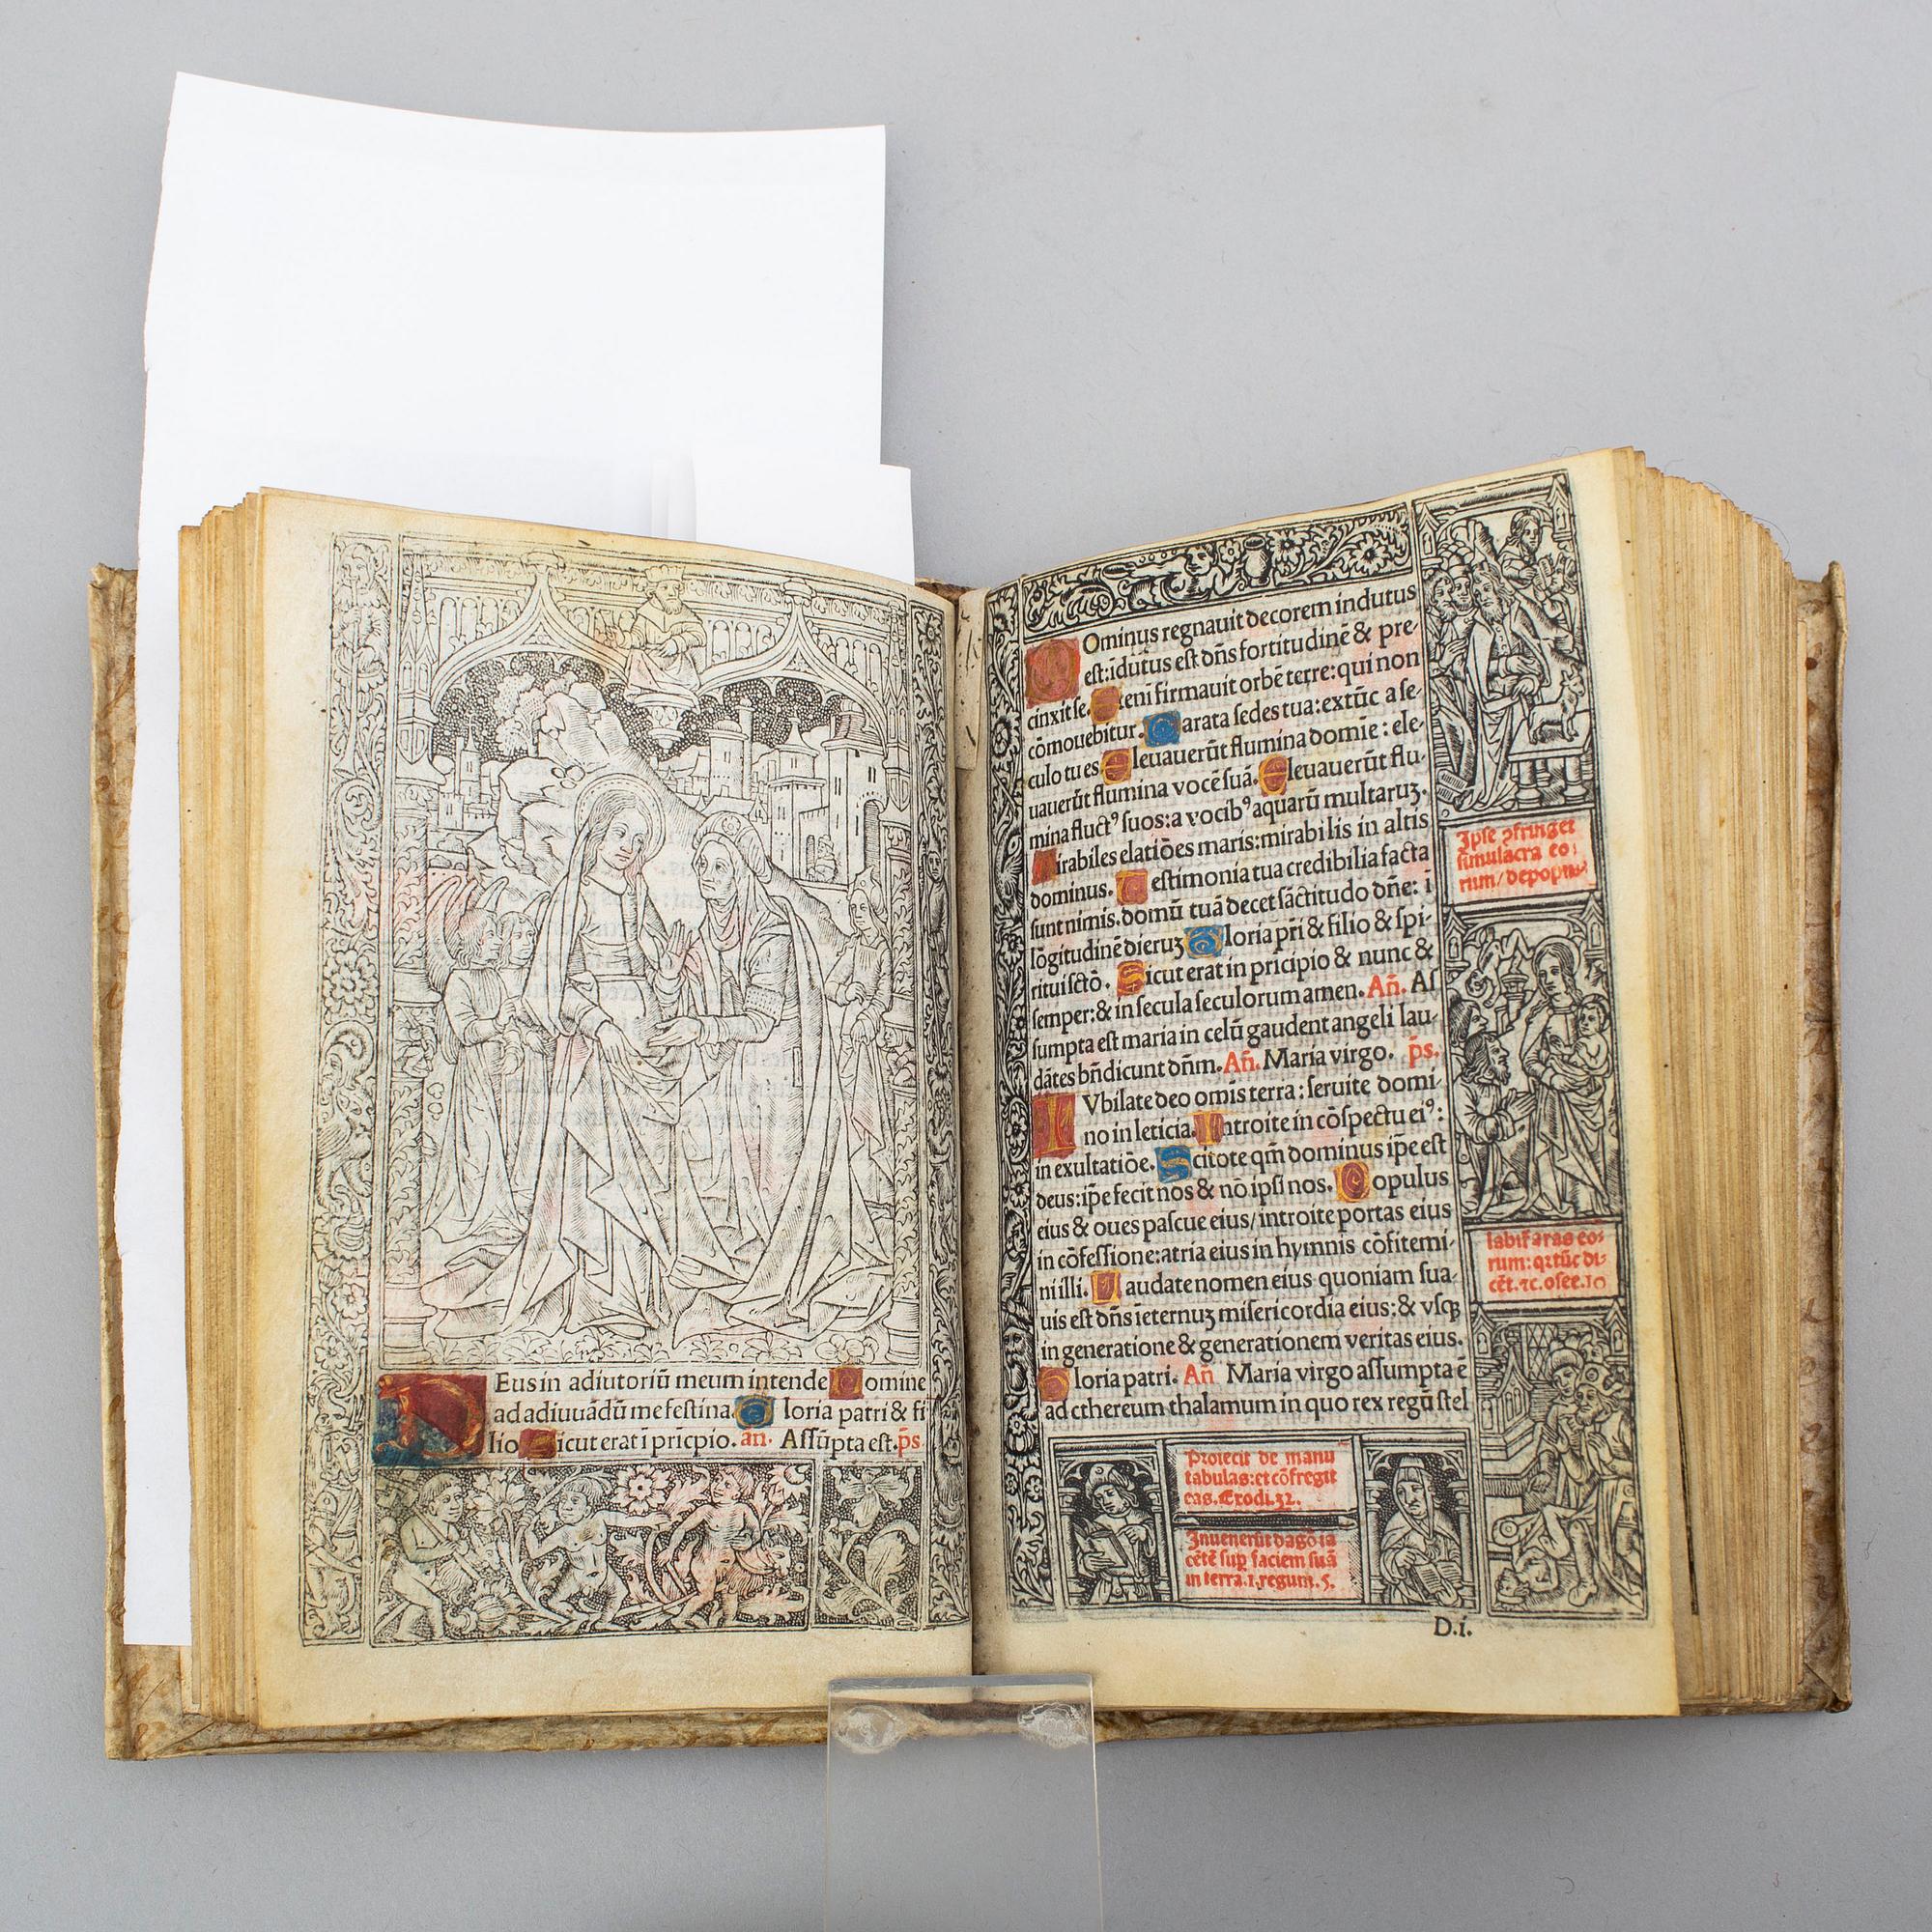 Eus in adiutoriū meum intende Domine
ad adiuuādū me festina. Gloria patri & fi
lio Sicut erat ī prīcpio. an. Assūpta est. p̄s
Ominus regnauit decorem indutus
est: īdutus est dn̄s fortitudinē & pre-
cinxit se. Eteni firmauit orbē terre: qui non
cōmouebitur. Parata sedes tua: extūc a se-
culo tu es Eleuauerūt flumina domīe: ele-
uauerūt flumina vocē suā. Eleuauerūt flu-
mina fluctꝰ suos: a vocibꝰ aquarū multaruꝫ.
Mirabiles elatiōes maris: mirabilis in altis
dominus. Testimonia tua credibilia facta
sunt nimis. domū tuā decet sāctitudo dn̄e: ī
lōgitudinē dieruꝫ Gloria pr̄i & filio & spi-
ritui sctō. Sicut erat in pricipio & nunc &
semper: & in secula seculorum amen. An̄. As
sumpta est maria in celū gaudent angeli lau-
dātes bn̄dicunt dn̄m. An̄. Maria virgo. p̄s.
IVbilate deo om̄is terra: seruite domi-
no in leticia. Introite in cōspectu eiꝰ:
in exultatiōe. Scitote qm̄ dominus ip̄e est
deus: ip̄e fecit nos & nō ipsi nos. Populus
eius & oues pascue eius/ introite portas eius
in cōfessione: atria eius in hymnis cōfitemi-
ni illi. Laudate nomen eius quoniam sua-
uis est dn̄s īeternuꝫ misericordia eius: & vsqꝫ
in generatione & generationem veritas eius.
Gloria patri. An̄ Maria virgo assumpta ē
ad ethereum thalamum in quo rex regū stel
Ipse ꝯfringet
simulacra eo:
rum/
labif aras eo:
rum: qr tūc di-
cēt. ⁊c. osee. 10
Proiecit de manu
tabulas: et cōfregit
eas. Exodi. 32.
Inuenerūt dagō ia
cētē sup̄ faciem suā
in terra. 1. regum. 5.
D.i.